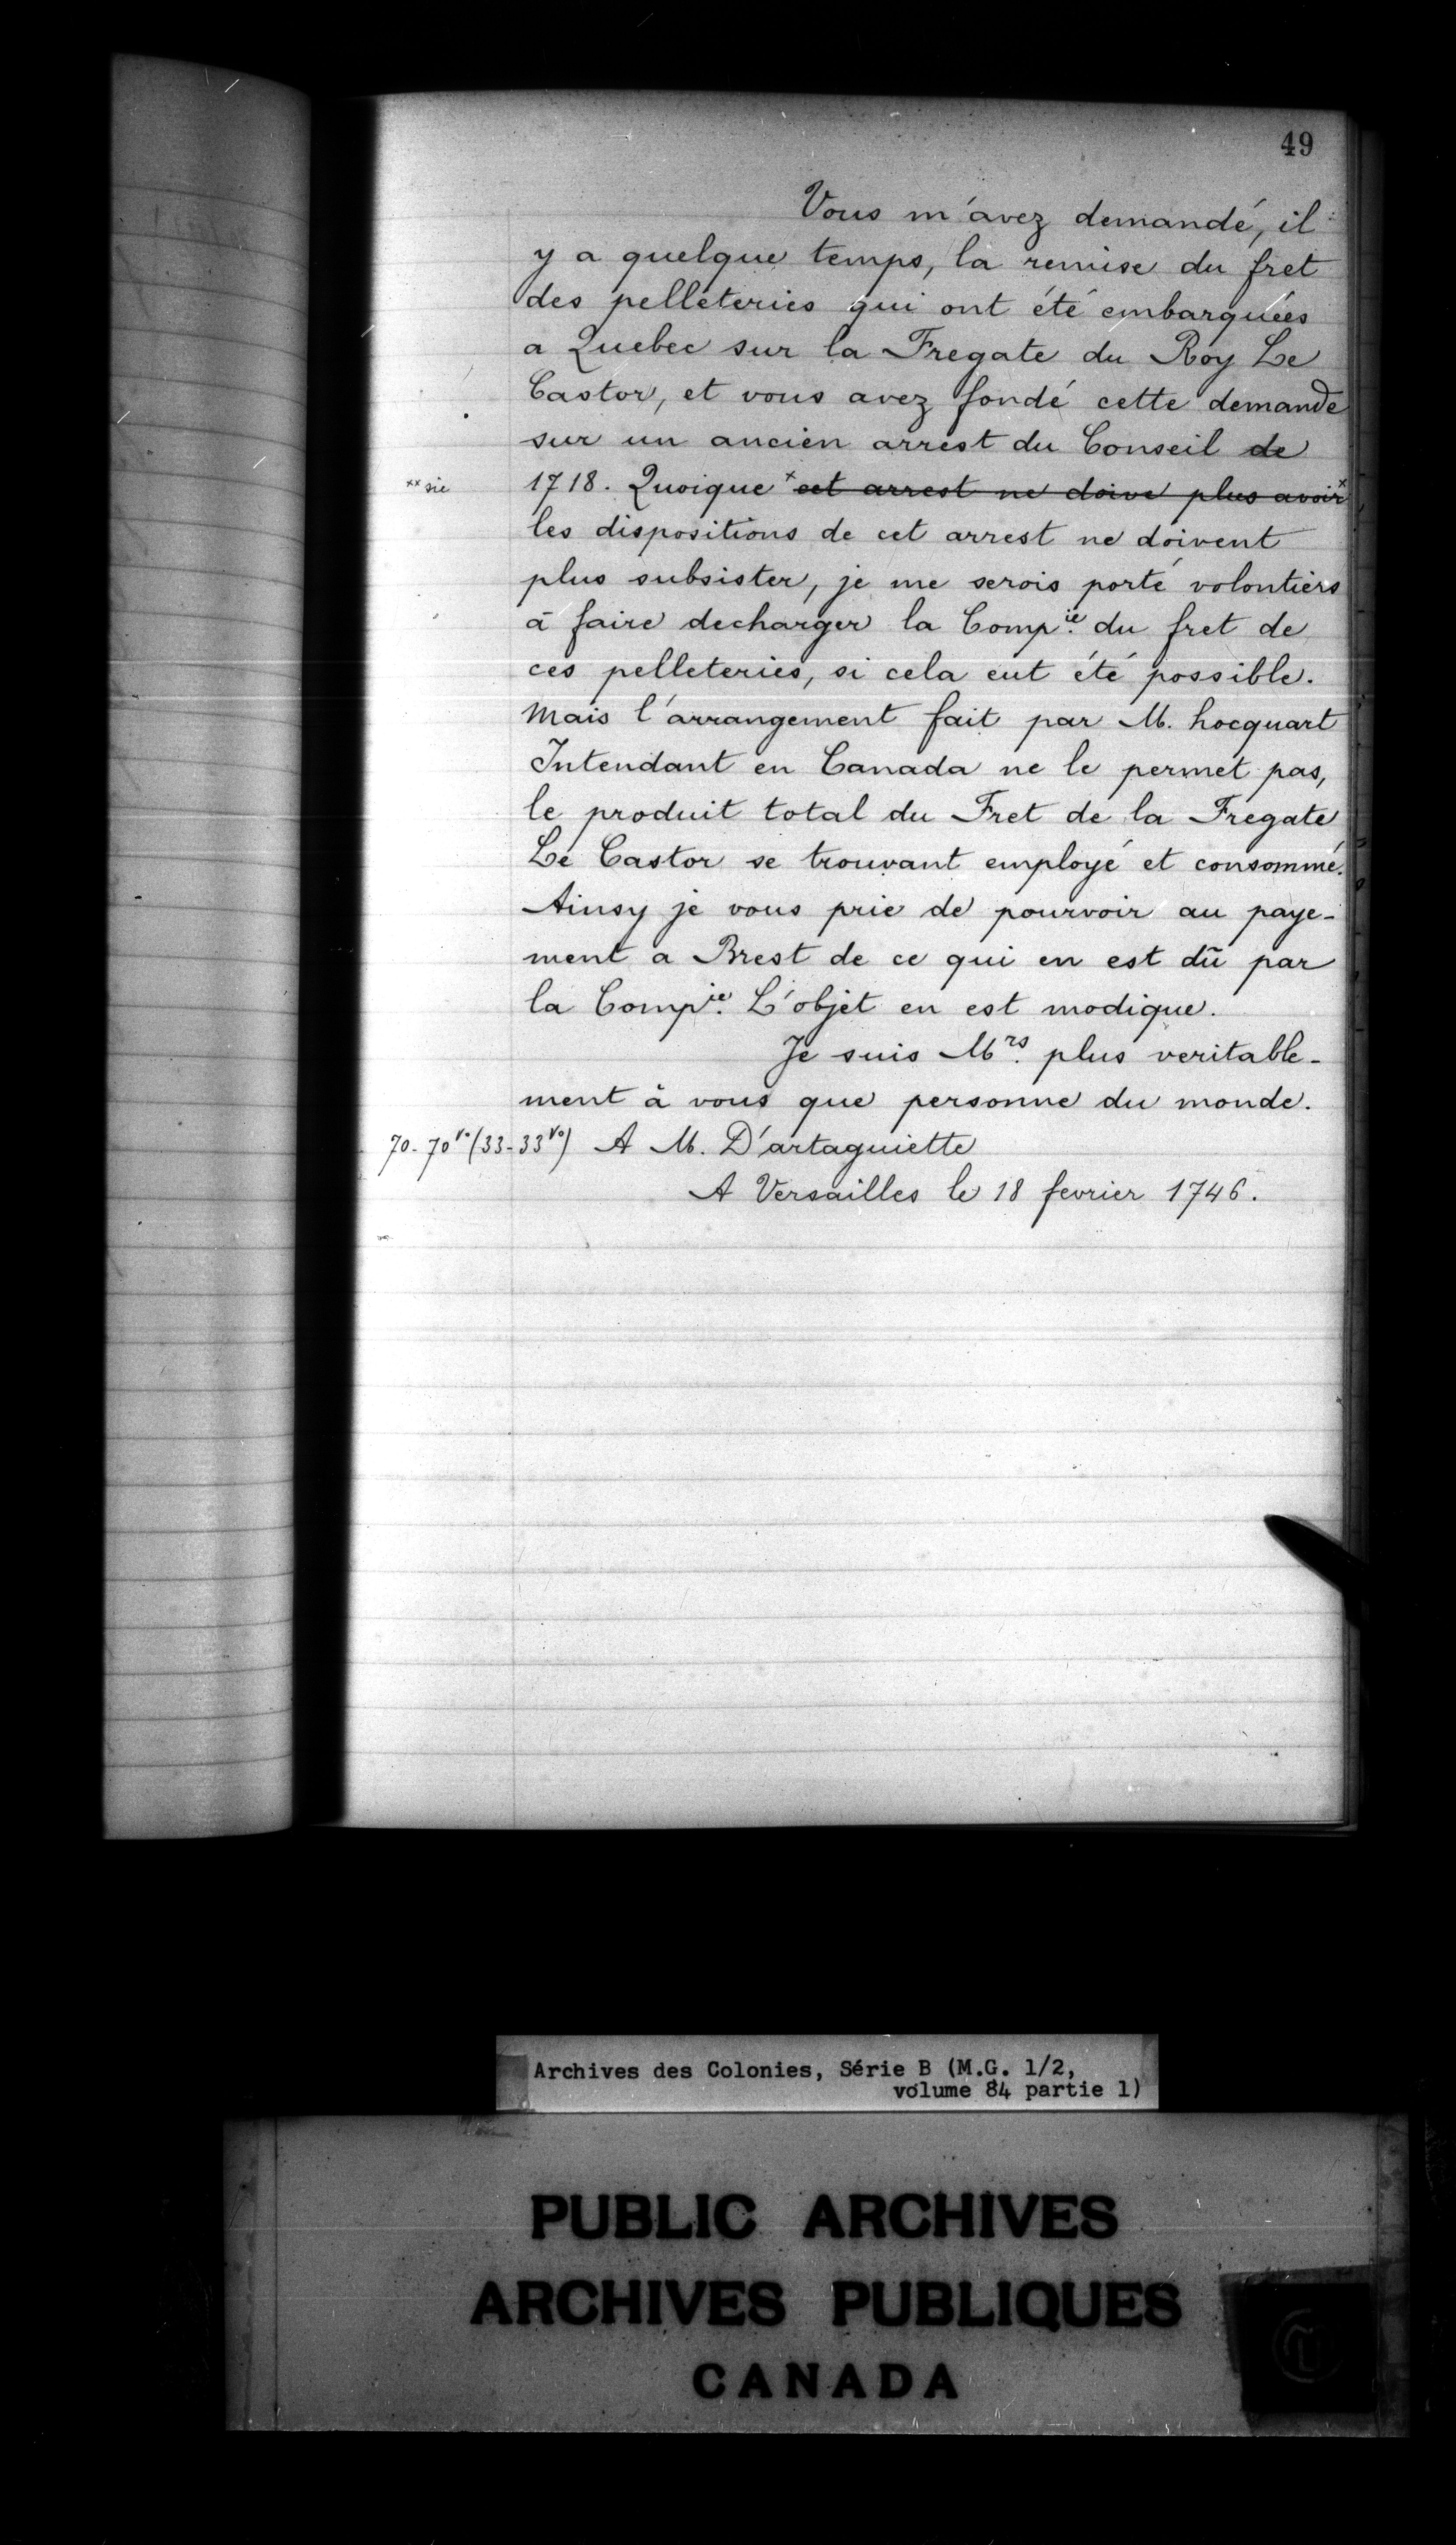 49
Vous m'avez demandé, il
y a quelque temps, la remise du fret
des pelleteries qui ont été embarquées
a Quebec sur la Fregate du Roy Le
Castor, et vous avez fondé cette demande
sur un ancien arrest du Conseil de
xx sic
1718. Quoique x cet arrest ne doive plus avoir x
les dispositions de cet arrest ne doivent
plus subsister, je me serois porté volontiers
à faire decharger la Comp.ie du fret de
ces pelleteries, si cela eut été possible.
Mais l'arrangement fait par M. hocquart
Intendant en Canada ne le permet pas,
le produit total du Fret de la Fregate
Le Castor se trouvant employé et consommé.
Ainsy je vous prie de pourvoir au paye-
ment a Brest de ce qui en est dû par
la Comp.ie L'objet en est modique.
Je suis M.rs plus veritable-
ment à vous que personne du monde.
70-70vo (33-33vo) A M. D'artaguiette
A Versailles le 18 fevrier 1746.
Archives des Colonies, Série B (M.G. 1/2,
volume 84 partie 1)
PUBLIC ARCHIVES
ARCHIVES PUBLIQUES
CANADA